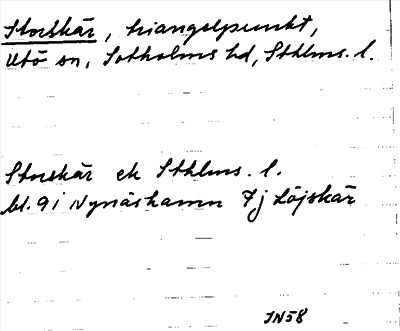 Storskär, triangelpunkt,
Utö sn, Sotholms hd, Sthlms. l.
Storskär ek Sthlms. l.
bl. 9i Nynäshamn 7j Löjskär
JN58